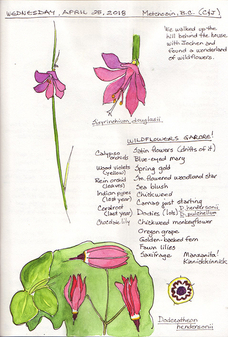 WEDNESDAY, APRIL 25, 2018 Metchosin, B.C. (C+J)
We walked up the
hill behind the house
with Jochen and
found a wonderland
of wildflowers.
Sisyrinchium douglasii
WILDFLOWERS GALORE!
Satin flowers (drifts of it)
Blue-eyed mary
Spring gold
Sm. flowered woodland star
Sea blush
Chickweed
Camas just starting
Dodies (lots) D. hendersonii
D. pulchellum
Chickweed monkeyflower
Oregon grape
Golden-backed fern
Fawn lilies
Saxifrage Manzanita
Kinnickinnick
Calypso
orchid
Wood violets
(yellow)
Rein orchid
(leaves)
Indian pipes
(last year)
Coralroot
(last year)
Chocolate lily
Dodecatheon
hendersonii